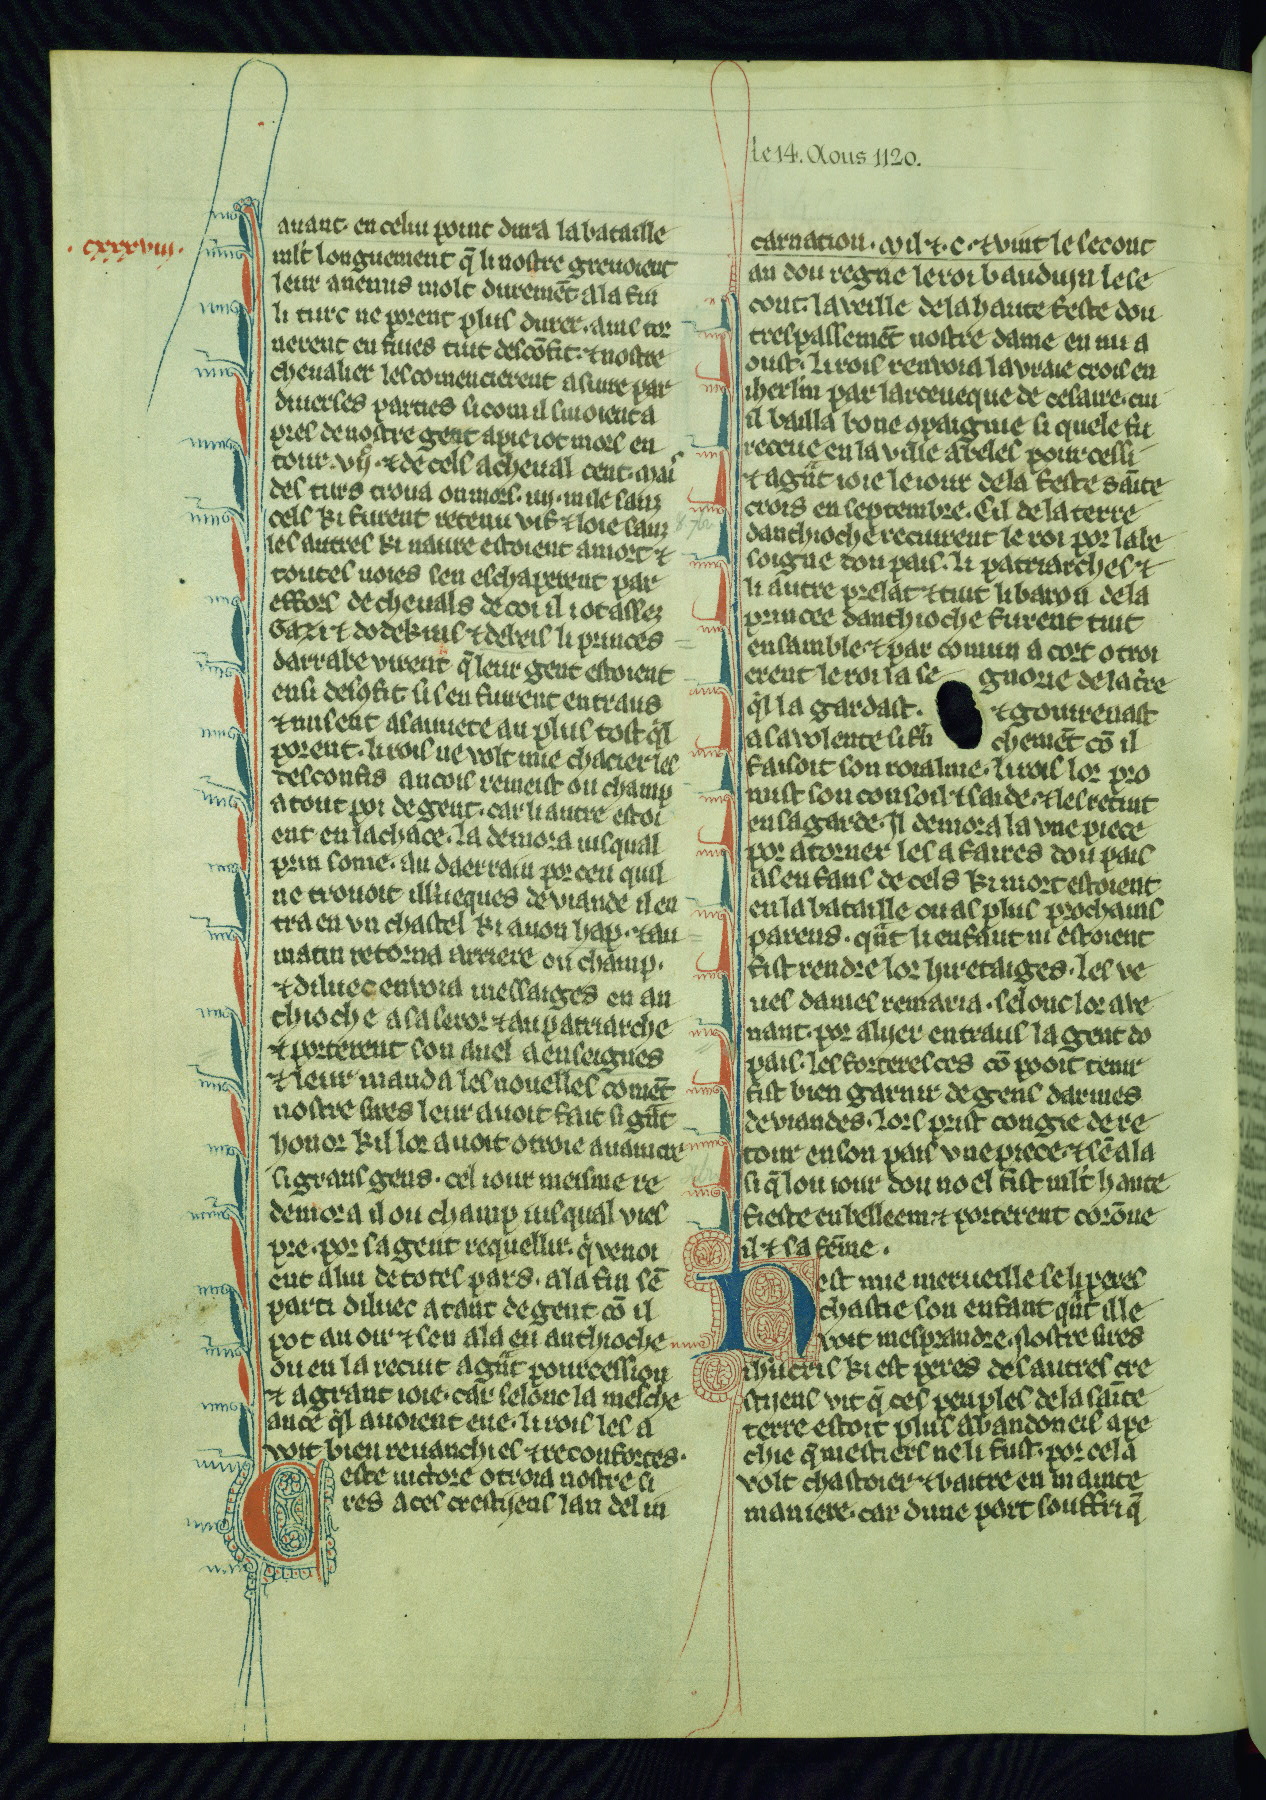 le 14. Aous 1120.
. cxxxviii .
auant. en celui point dura la bataille
ml't longuement q̃ li nostre greuoient
leur anemis molt duremẽt. a la fin
li turc ne porent plus durer. ains tor
nerent en fuies tuit descõfit. ⁊ nostre
cheualier les comencierent a siure par
diuerses parties si com il fuioient a
pres de nostre gent a pie iot mors en
tour. vij. ⁊ de cels a cheual cent. Mais
des turs troua on mors. iiij. mile sanz
cels ki furent retenu vif ⁊ loie sanz
les autres ki naure estoient a mort ⁊
toutes uoies sen eschaperent par
effors de cheuals de coi il i ot assez
Gazi ⁊ dodekins ⁊ debeis li princes
darrabe virent q̃ leur gent estoient
ensi descõfit si sen furent en traus
⁊ nusent a sauuete au plus tost q̃l
porent. li rois ne volt mie chacier les
desconfis ancois remeist ou champ
a tout poi de gent. car li autre estoi
ent en la chace. la demora iusqual
prin some. au daerrain por ceu quil
ne trouoit illueques de viande il en
tra en vn chastel ki auon hap. ⁊ au
matin retorna arriere ou champ.
⁊ diluec enuoia messaiges en an
thioche a sa seror ⁊ au patriarche
⁊ porterent son anel a enseignes
⁊ leur manda les nouelles comẽt
nostre sires leur auoit fait si grãt
honor kil lor auoit otroie a uaincre
si grans gens. cel iour meisme re
demora il ou champ iusqual ves
pre. por sa gent requellir. q̃ venoi
ent a lui de totes pars. a la fin sẽ
parti diluec a tant de gent cõ il
pot auoir ⁊ sen ala en anthioche
ou en la recuit a grãt pourcession
⁊ a grant ioie. car selonc la mesche
ance q̃l auoient eue. li rois les a
voit bien reuanchies ⁊ reconfortes.
Ceste uictore otroia nostre si
res a ces crestijens lan del in
carnation. Mil. ⁊. c. ⁊ vint le secont
an dou regne le roi bauduin le se
cont. la veille de la haute feste dou
trespassemẽt nostre dame en mi a
oust. li rois renuoia la vraie crois en
iherlm̃ par larceueque de cesaire. cui
il bailla bone cõpaignie si quele fu
receue en la ville a beles pourcessi
⁊ a grãt ioie le iour de la feste sãite
crois en septembre. Cil de la terre
danthioche recuirent le roi por la be
soigne dou pais. li patriarches ⁊
li autre prelat ⁊ tuit li baron de la
princee danthioche furent tuit
ensamble. ⁊ par comun acort otroi
erent le roi la se gnorie de la t̃re
q̃l la gardast. ⁊ gouuernast
a sa volente si frã chemẽt cõ il
faisoit son roialme. li rois lor pro
mist son consoil ⁊ saide. ⁊ les recuit
en sa garde. Il demora la vne piece
por atorner les afaires dou pais
as enfans de cels ki mort estoient
en la bataille ou as plus prochains
parens. quãt li enfant ni estoient
fist rendre lor hiretaiges. les ve
ues dames remaria. selonc lor aue
nant. por aluer en traus la gent do
pais. les forteresces cõ pooit tenir
fist bien garnir de gens darmes
de viandes. lors prist congie de re
tour en son pais vne piece. ⁊ sẽ ala
si q̃ lou iour dou noel fist ml't haute
fieste en belleem ⁊ porterent corõne
il ⁊ sa fẽme.
Nest mie merueille se li peres
chastie son enfant quãt il le
voit mesprandre. Nostre sires
ihucris ki est peres des autres cre
stijens vit q̃ ces peuples de la saĩte
terre estoit plus abandoneis a pe
chie q̃ mestiers ne li fust. por ce la
volt chastoier ⁊ baitre en mainte
maniere. car dune part souffri q̃